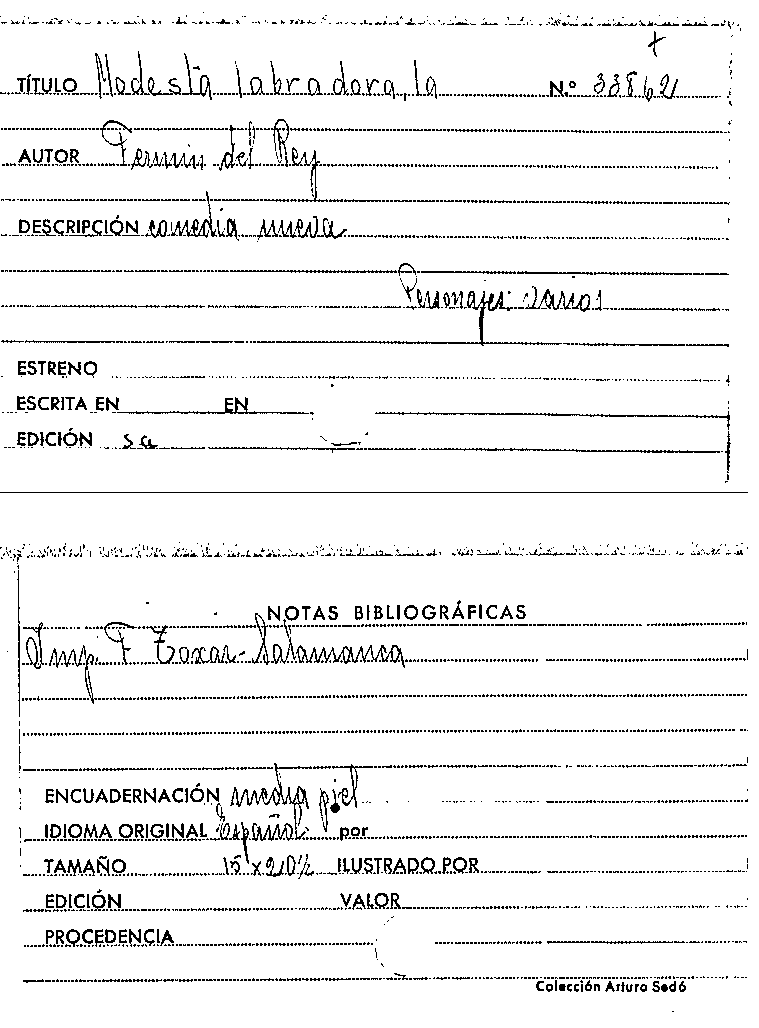 TÍTULO Modesta labradora, la N.º 33862
AUTOR Fermin del Rey
DESCRIPCIÓN comedia nueva
Personajes: varios
ESTRENO
ESCRITA EN EN
EDICIÓN sa
NOTAS BIBLIOGRÁFICAS
Imp. F Toxar - Salamanca
ENCUADERNACIÓN media piel
IDIOMA ORIGINAL Español por
TAMAÑO 15 x 20½ ILUSTRADO POR
EDICIÓN VALOR
PROCEDENCIA
Colección Arturo Sedó